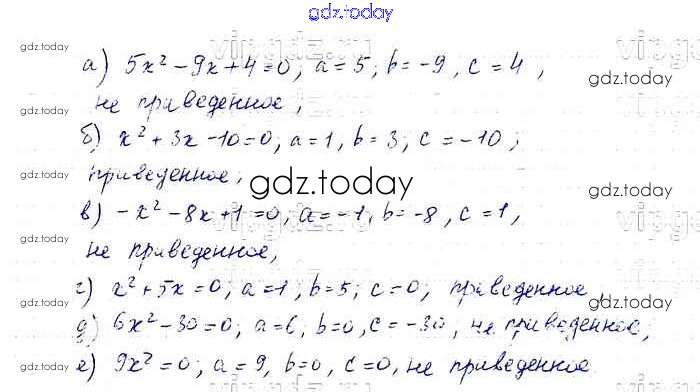 gdz.today
gdz.today
vipgdz.ru
а) 5x² - 9x + 4 = 0; a = 5; b = -9, c = 4,
gdz.today
gdz.today
не приведенное,
б) x² + 3x - 10 = 0; a = 1, b = 3; c = -10;
gdz.today
приведенное;
gdz.today
gdz.today
в) -x² - 8x + 1 = 0; a = -1, b = -8, c = 1,
gdz.today
не приведенное,
г) x² + 5x = 0; a = 1; b = 5; c = 0, приведенное,
gdz.today
gdz.today
д) 6x² - 30 = 0; a = 6; b = 0, c = -30, не приведенное;
е) 9x² = 0; a = 9, b = 0, c = 0, не приведенное
gdz.today
gdz.today